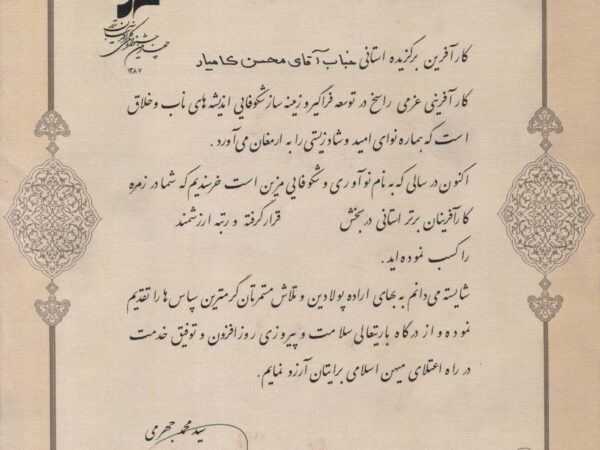 ۱۳۸۷
کارآفرین برگزیده استانی جناب آقای محسن کامیار
کارآفرینی عزمی راسخ در توسعه فراگیر و زمینه ساز شکوفایی اندیشه های ناب و خلاق
است که هماره نوای امید و شادزیستی را به ارمغان می‌آورد .
اکنون در سالی که به نام نوآوری و شکوفایی مزین است خرسندیم که شما در زمره
کارآفرینان برتر استانی در بخش قرار گرفته و رتبه ارزشمند
را کسب نموده اید .
شایسته می‌دانم به بهای اراده پولادین و تلاش مستمرتان گرمترین سپاس ها را تقدیم
نموده و از درگاه باریتعالی سلامت و پیروزی روزافزون و توفیق خدمت
در راه اعتلای میهن اسلامی برایتان آرزو نمایم .
سید محمد جهرمی